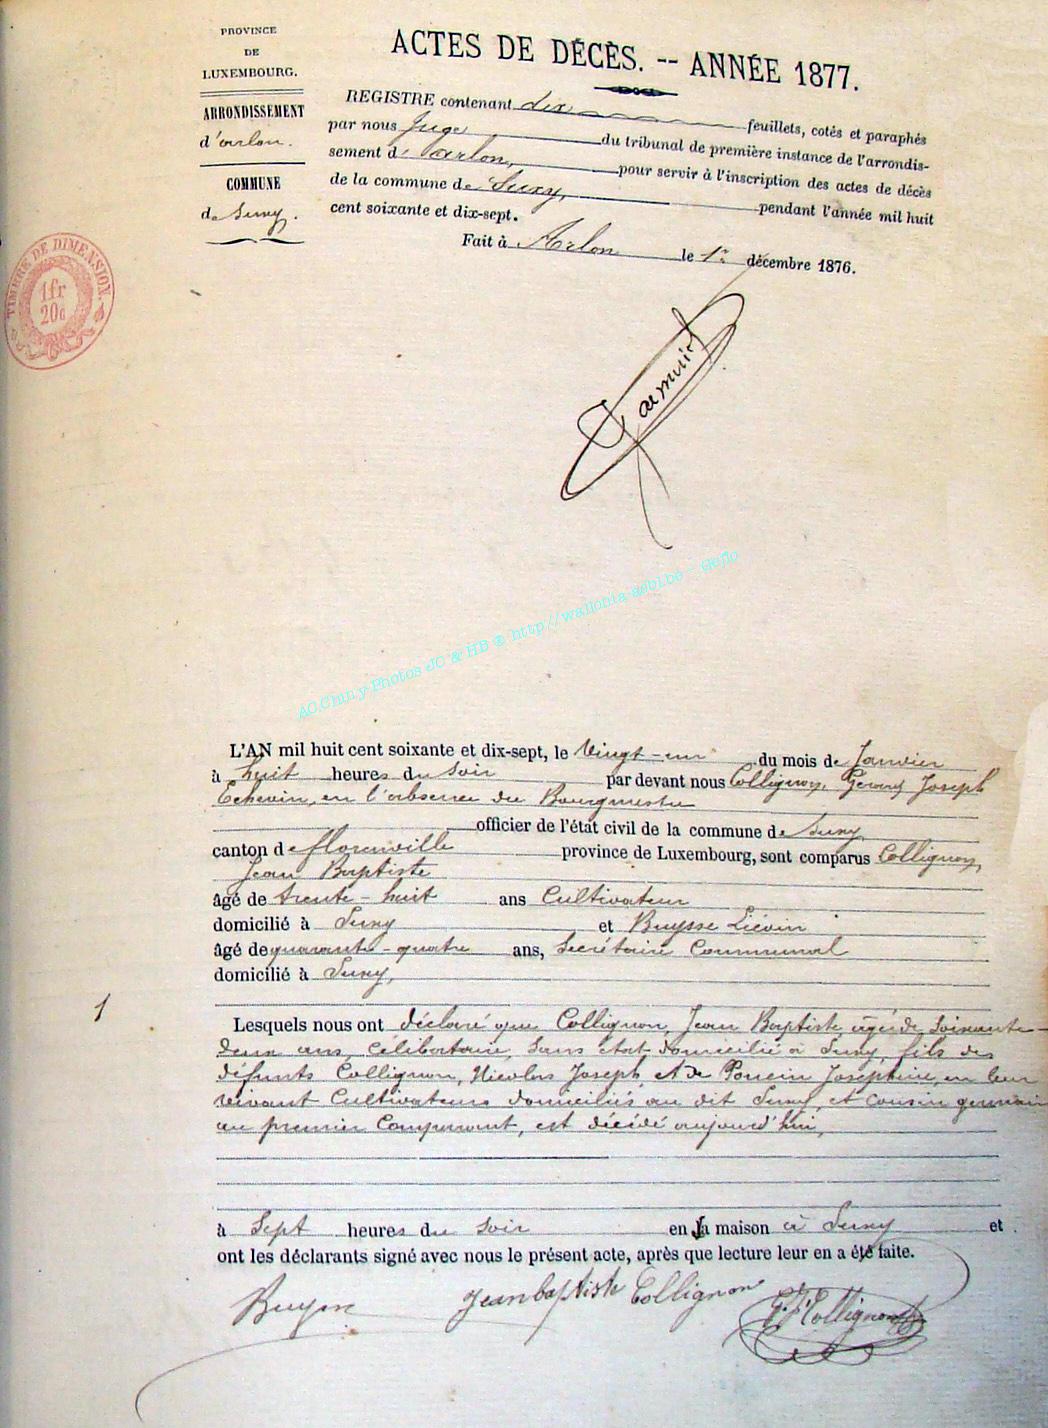 PROVINCE
DE
LUXEMBOURG.
ARRONDISSEMENT
d'arlon.
COMMUNE
de Suxy.
TIMBRE DE DIMENSION.
1fr
20c
ACTES DE DÉCÈS. -- ANNÉE 1877.
REGISTRE contenant dix feuillets, cotés et paraphés
par nous Juge du tribunal de première instance de l'arrondis-
sement d'arlon, pour servir à l'inscription des actes de décès
de la commune de Suxy, pendant l'année mil huit
cent soixante et dix-sept.
Fait à Arlon le 1er décembre 1876.
AC.Chiny-Photos JC & HB @ http://wallonia-asbl.be - Geflo
L'AN mil huit cent soixante et dix-sept, le vingt-un du mois de Janvier
à huit heures du soir par devant nous Collignon, Gerard Joseph
Echevin, en l'absence du Bourgmestre
officier de l'état civil de la commune de Suxy,
canton de florenville province de Luxembourg, sont comparus Collignon,
Jean Baptiste
âgé de trente-huit ans Cultivateur
domicilié à Suxy et Buysse Liévin
âgé de quarante-quatre ans, Secrétaire Communal
domicilié à Suxy,
1
Lesquels nous ont déclaré que Collignon, Jean Baptiste, agé de soixante-
deux ans, célibataire, sans état domicilié à Suxy, fils des
défunts Collignon, Nicolas Joseph, et de Poncin Josephine, en leur
vivant Cultivateurs domiciliés au dit Suxy, et cousin germain
au premier Comparant, est décédé aujourd'hui,
à sept heures du soir en la maison à Suxy et
ont les déclarants signé avec nous le présent acte, après que lecture leur en a été faite.
Buysse Jean baptiste Collignon G. J. Collignon